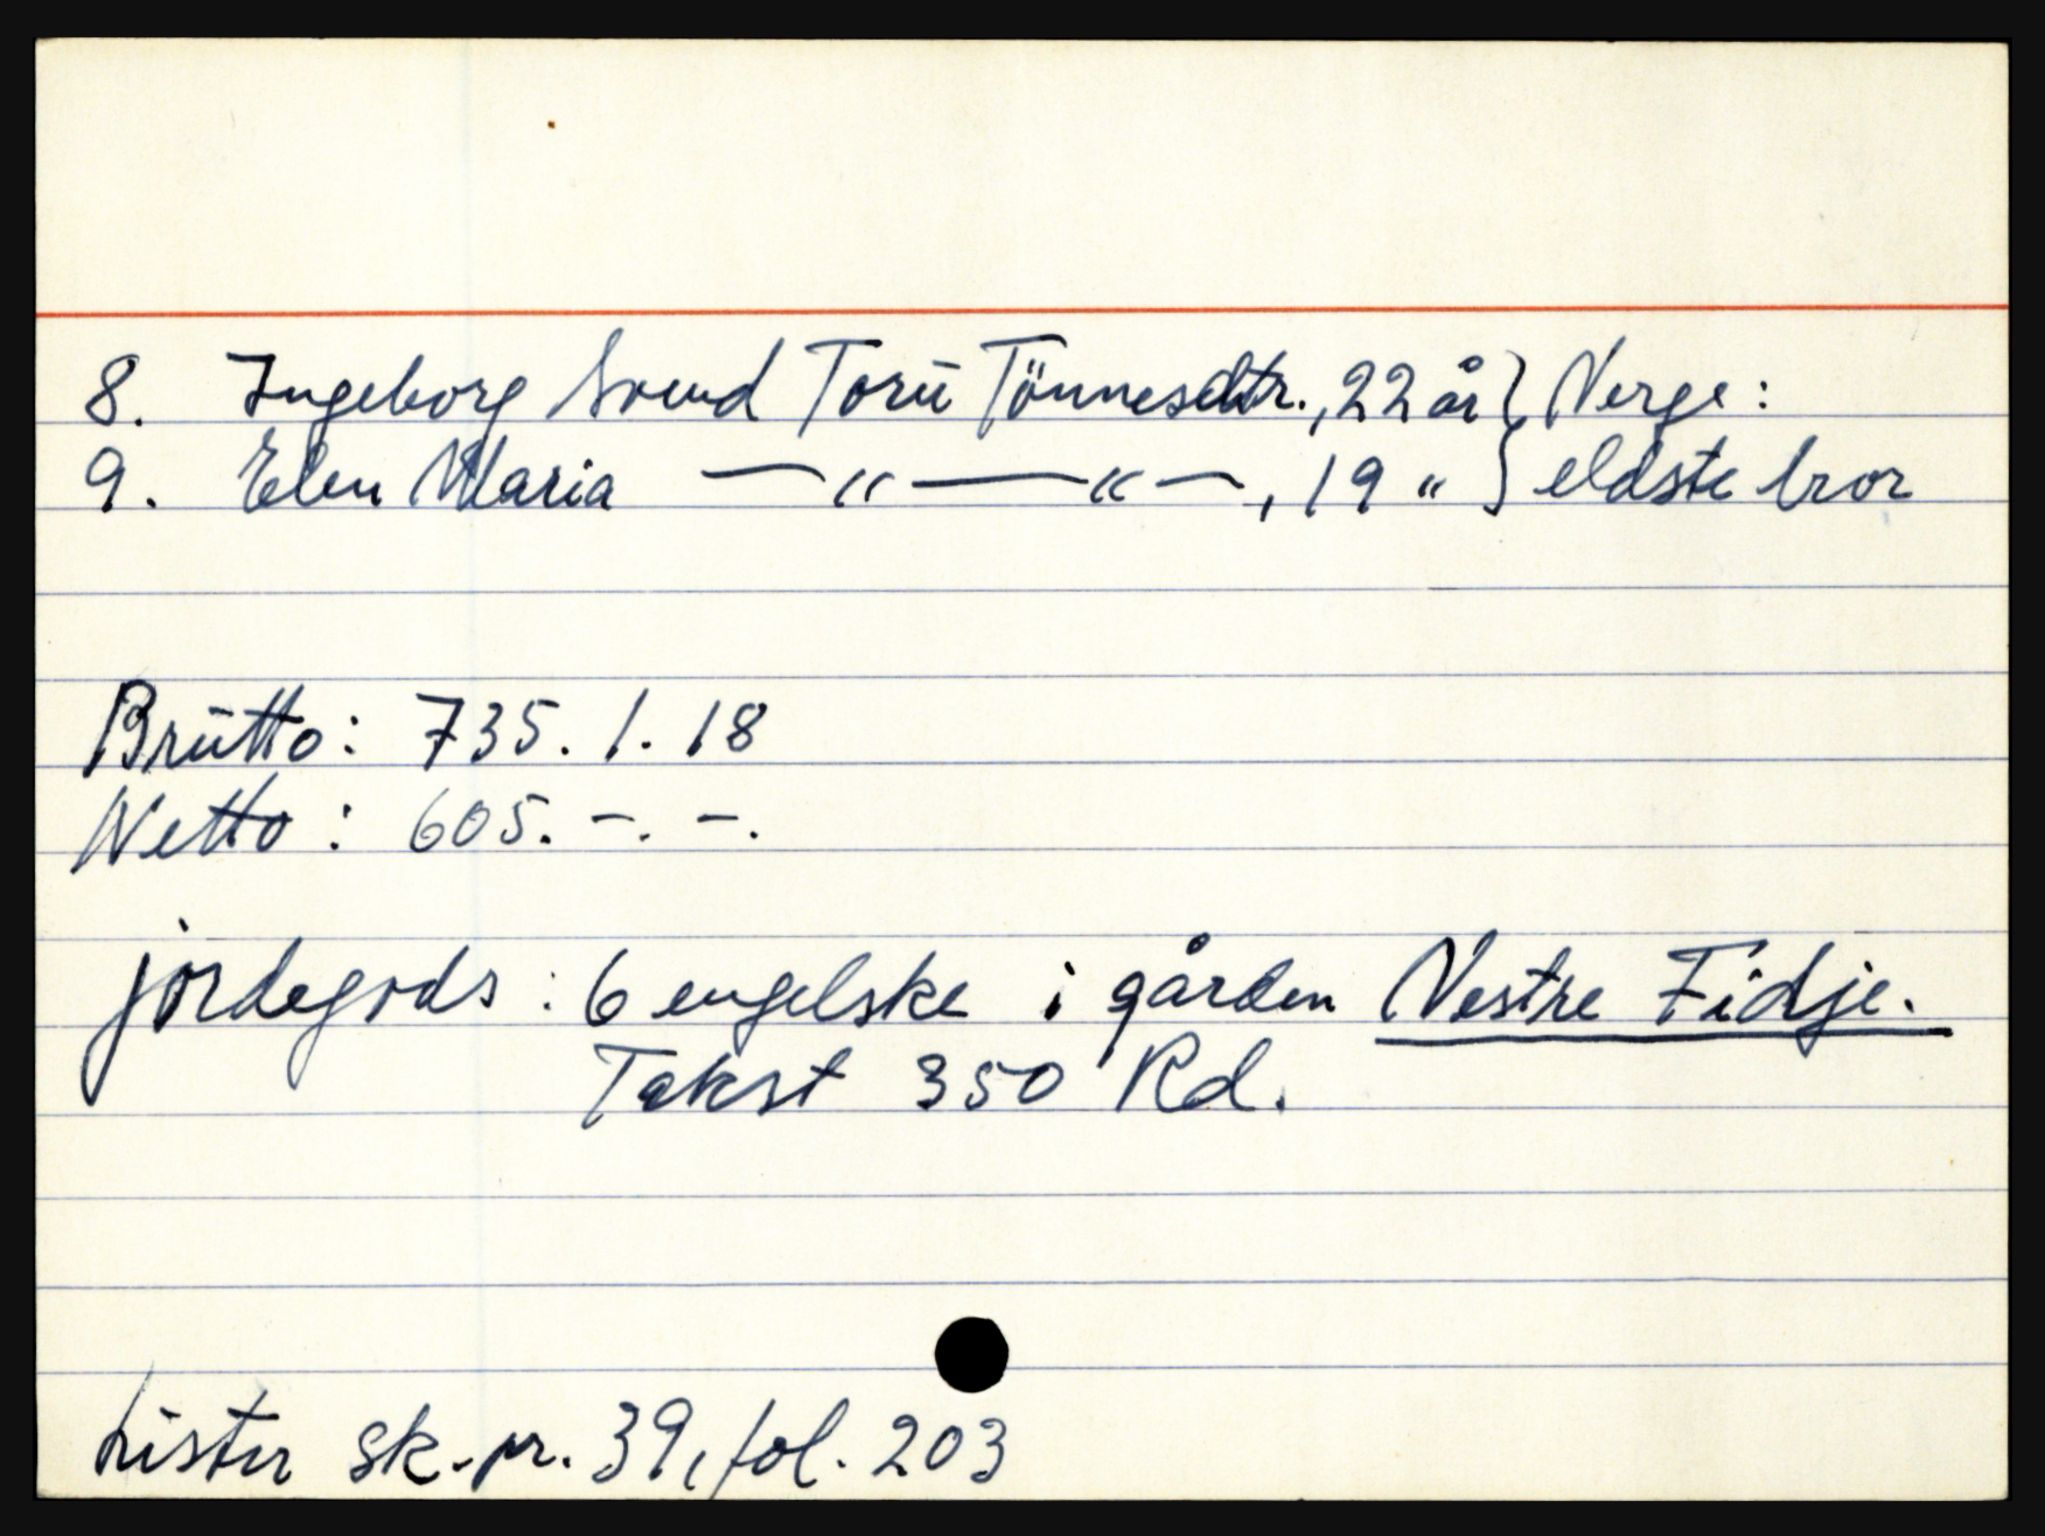 8. Ingeborg Svend Toru Tönnesdtr., 22 år } Verge:
9. Elen Maria —"——"—, 19 " } eldste bror
Brutto: 735. 1. 18
Netto: 605. -. -.
jordegods: 6 engelske i gården Vestre Fidje.
Takst 350 Rd.
Lister sk.pr. 39, fol. 203